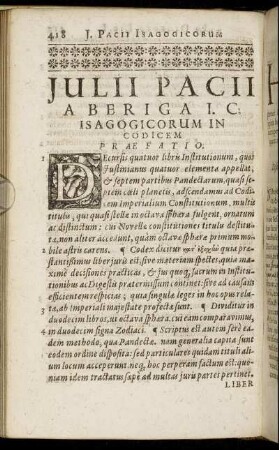 418 J. PACII ISAGOGICORUM
JULII PACII
A BERIGA I. C.
ISAGOGICORUM IN
CODICEM
PRÆFATIO.
1 DEcursis quatuor libris Institutionum, quos
Justinianus quatuor elementa appellat,
& septem partibus Pandectarum, quasi se-
ptem cœli planetis, ascendamus ad Codi-
cem imperialium Constitutionum, multis
titulis, qui quasi stellæ in octava sphæra fulgent, ornatum
ac distinctum: cui Novellæ constitutiones titulis destitu-
tæ, non aliter accedunt, quàm octavæ sphæræ primum mo-
2 bile astris carens. ¶ Codex dicitur quia præ-
stantissimus liber juris est: sive materiam spectes: quia ma-
ximè decisiones practicas, & jus quoq; sacrum ex Institu-
tionibus ac Digestis prætermissum continet: sive ad causam
efficientem respicias; quia singulæ leges in hoc opus relatæ,
3 ab imperiali majestate profectæ sunt. ¶ Dividitur in
duodecim libros, ut octava sphæra, cui eam comparavimus,
4 in duodecim signa Zodiaci. ¶ Scriptus est autem ferè ea-
dem methodo, qua Pandectæ. nam generalia capita sunt
eodem ordine disposita: sed particulares quidam tituli ali-
um locum acceperunt. neq; hoc perperam factum est: quo-
niam idem tractatus sæpè ad multas juris partes pertinet.
LIBER